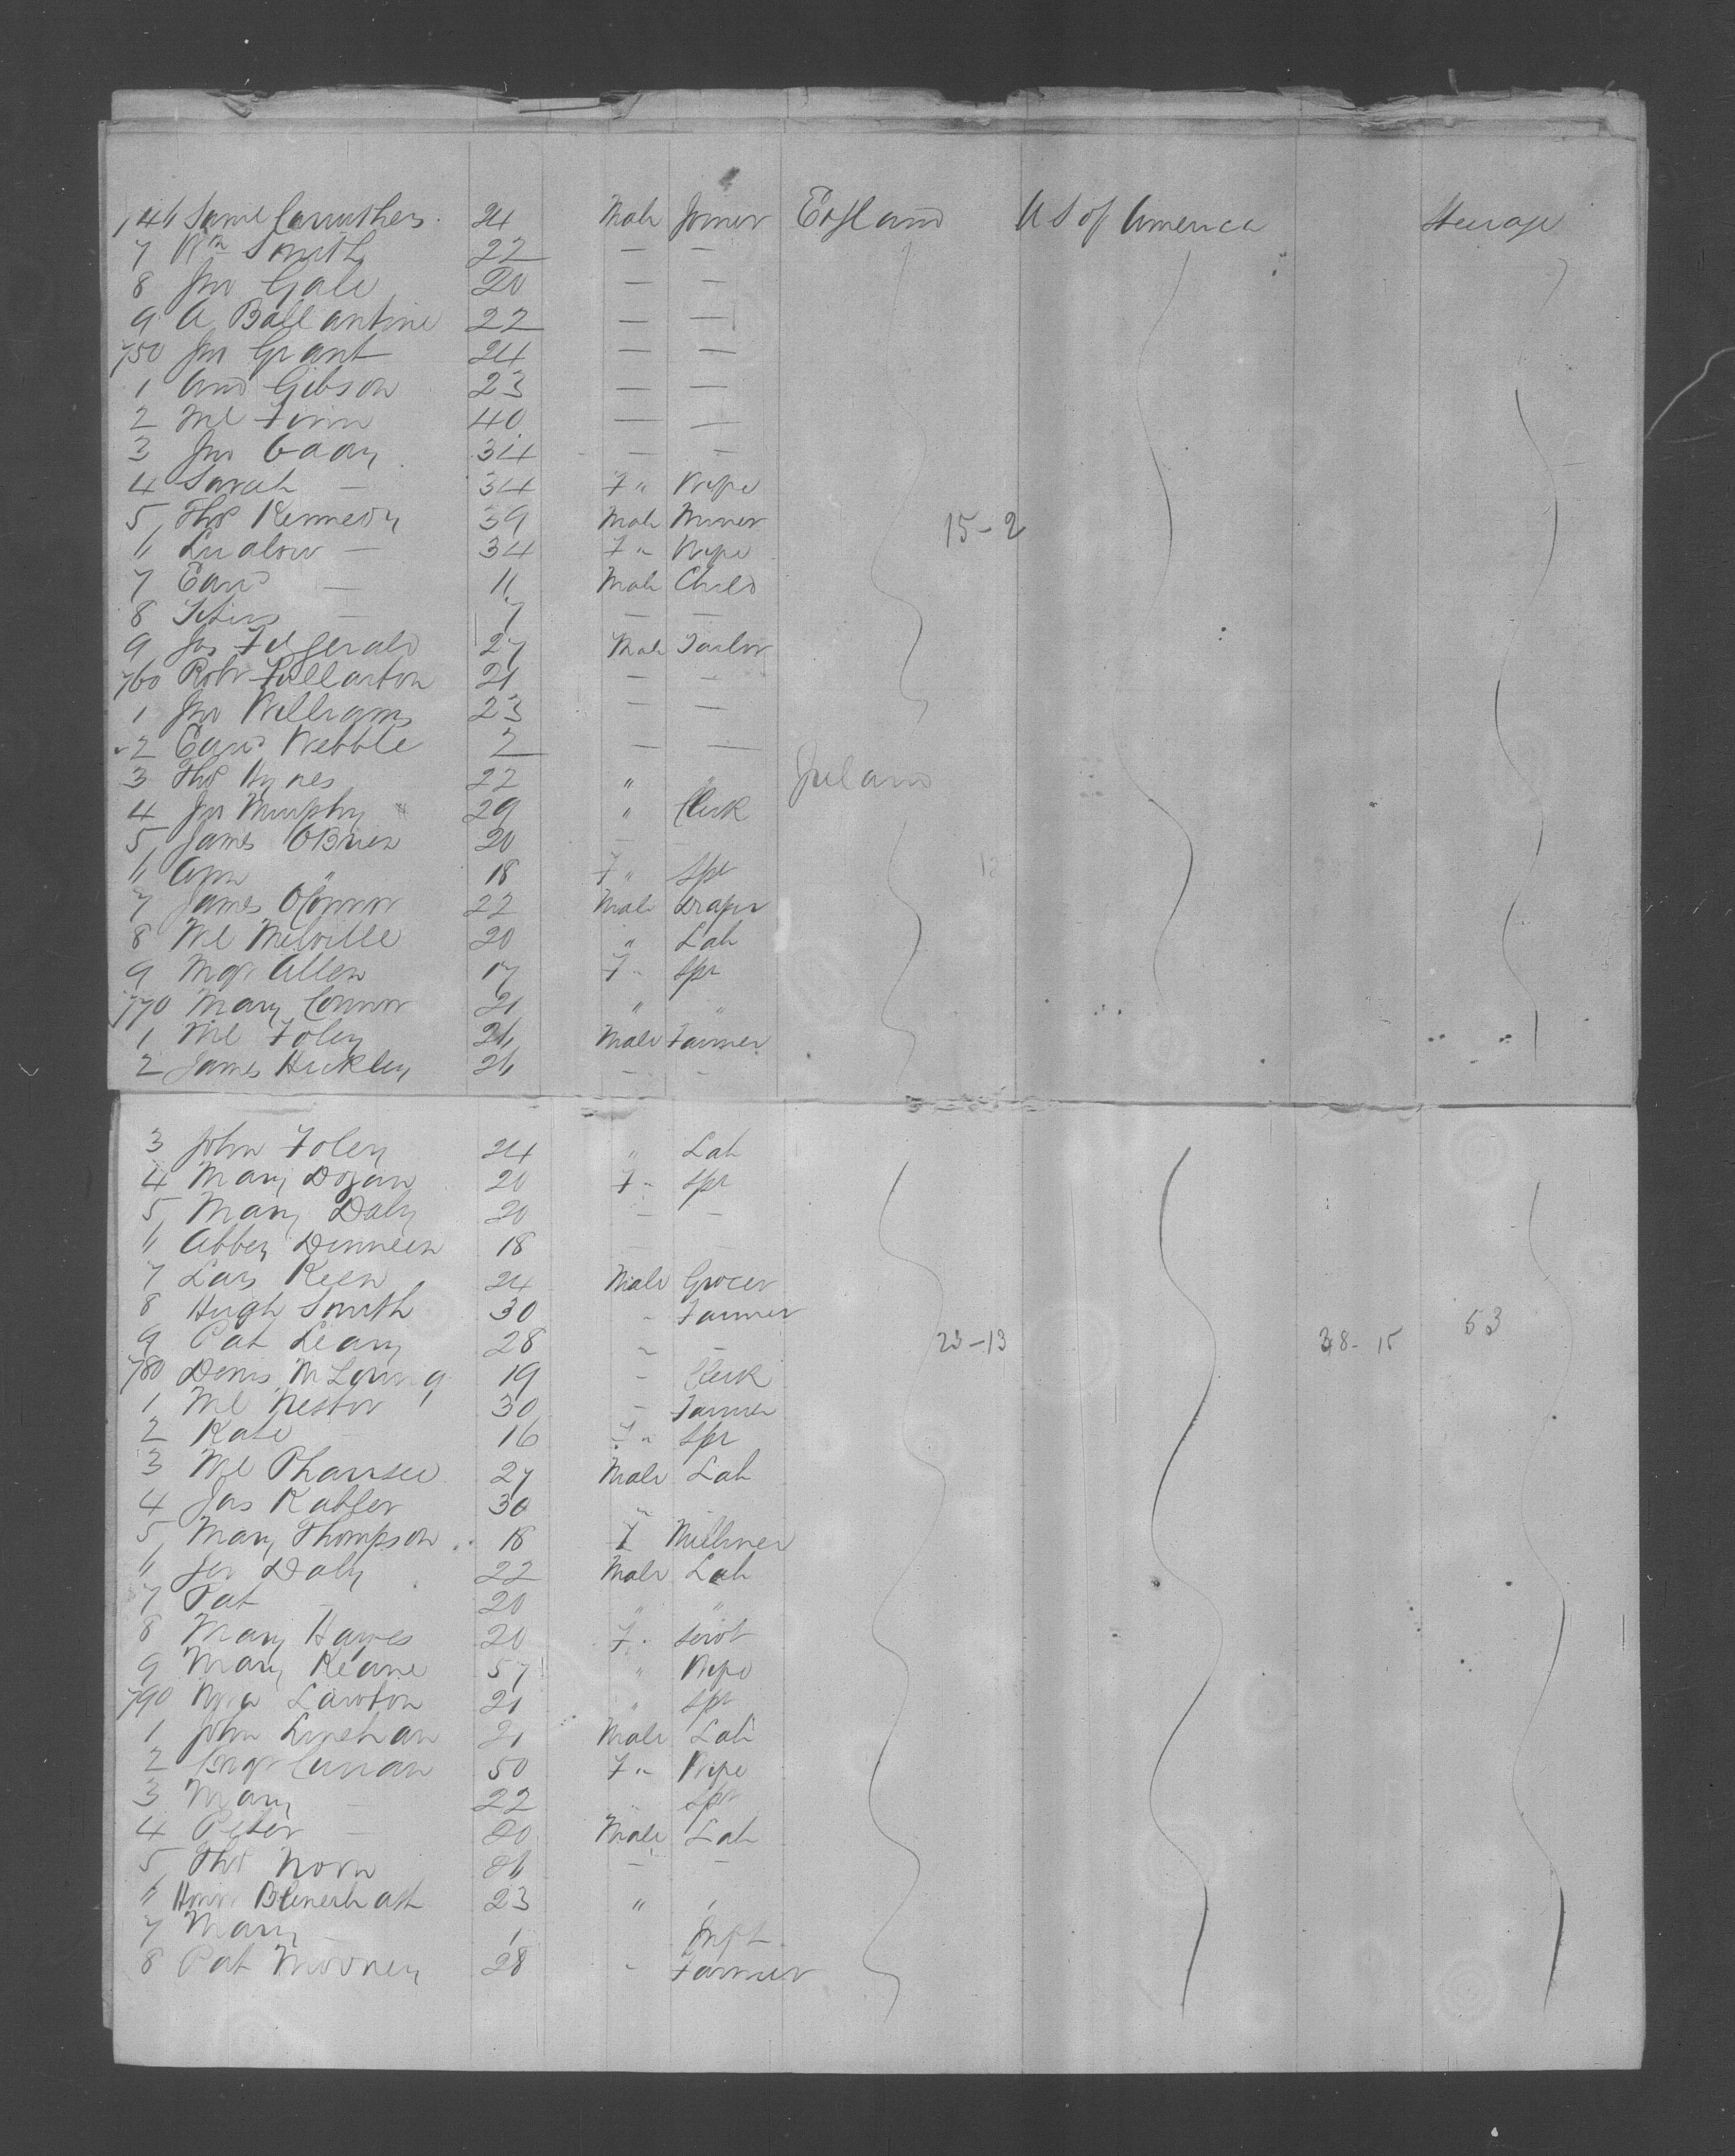 746 Saml Carruthers 24 Male Joiner England U S of America Steerage
7 Wm Smith 22 — —
8 Jno Gale 20 — —
9 A Ballantine 22 — —
750 Jno Grant 24 — —
1 And Gibson 23 — —
2 Ml Finn 40 — —
3 Jno 34 — —
4 Sarah — 34 F " Wife
5 Thos Kennedy 39 Male Miner 15-2
6 — 34 F " Wife
7 Edwd — 11 Male Child
8 — 7 — —
9 Jas Fitzgerald 27 Male Tailor
760 Robt Fullarton 21 — —
1 Jno Williams 23 — —
2 Edwd Webble 2 — —
3 Thos Hynes 22 " " Ireland
4 Jno Murphy 29 " Clerk
5 James OBrien 20 — —
6 Ann " 18 F " Spr
7 James OConnor 22 Male Draper
8 Ml Melville 20 " Lab
9 Mgt Allen 17 F " Spr
770 Mary Connor 21 " "
1 Ml Foley 26 Male Farmer
2 James Hickley 26 — —
3 John Foley 24 " Lab
4 Mary Dogan 20 F " Spr
5 Mary Daly 20 — —
6 Abbey Dinneen 18
7 Keen 24 Male Grocer
8 Hugh Smith 30 " Farmer
9 Pat Leary 28 " — 23-13 38-15 53
780 Denis 19 " Clerk
1 Ml Nestor 30 " Farmer
2 Kate — 16 F " Spr
3 Ml 27 Male Lab
4 Jas 30 "
5 Mary Thompson 18 F Milliner
6 Jer Daly 22 Male Lab
7 Pat — 20 " "
8 Mary Hawes 20 F " Servt
9 Mary Keane 57 " Wife
790 Lawton 21 " Spr
1 John Linehan 21 Male Lab
2 Brgt Curran 50 F " Wife
3 Mary — 22 Spr
4 Peter — 20 Male Lab
5 Thos 26 — —
6 23 " "
7 Mary — 1 Inft
8 Pat Mooney 28 " Farmer